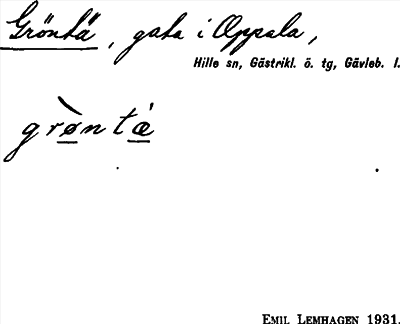 Gröntä, gata i Oppala,
Hille sn, Gästrikl. ö. tg, Gävleb. l.
grøntæ
EMIL LEMHAGEN 1931.